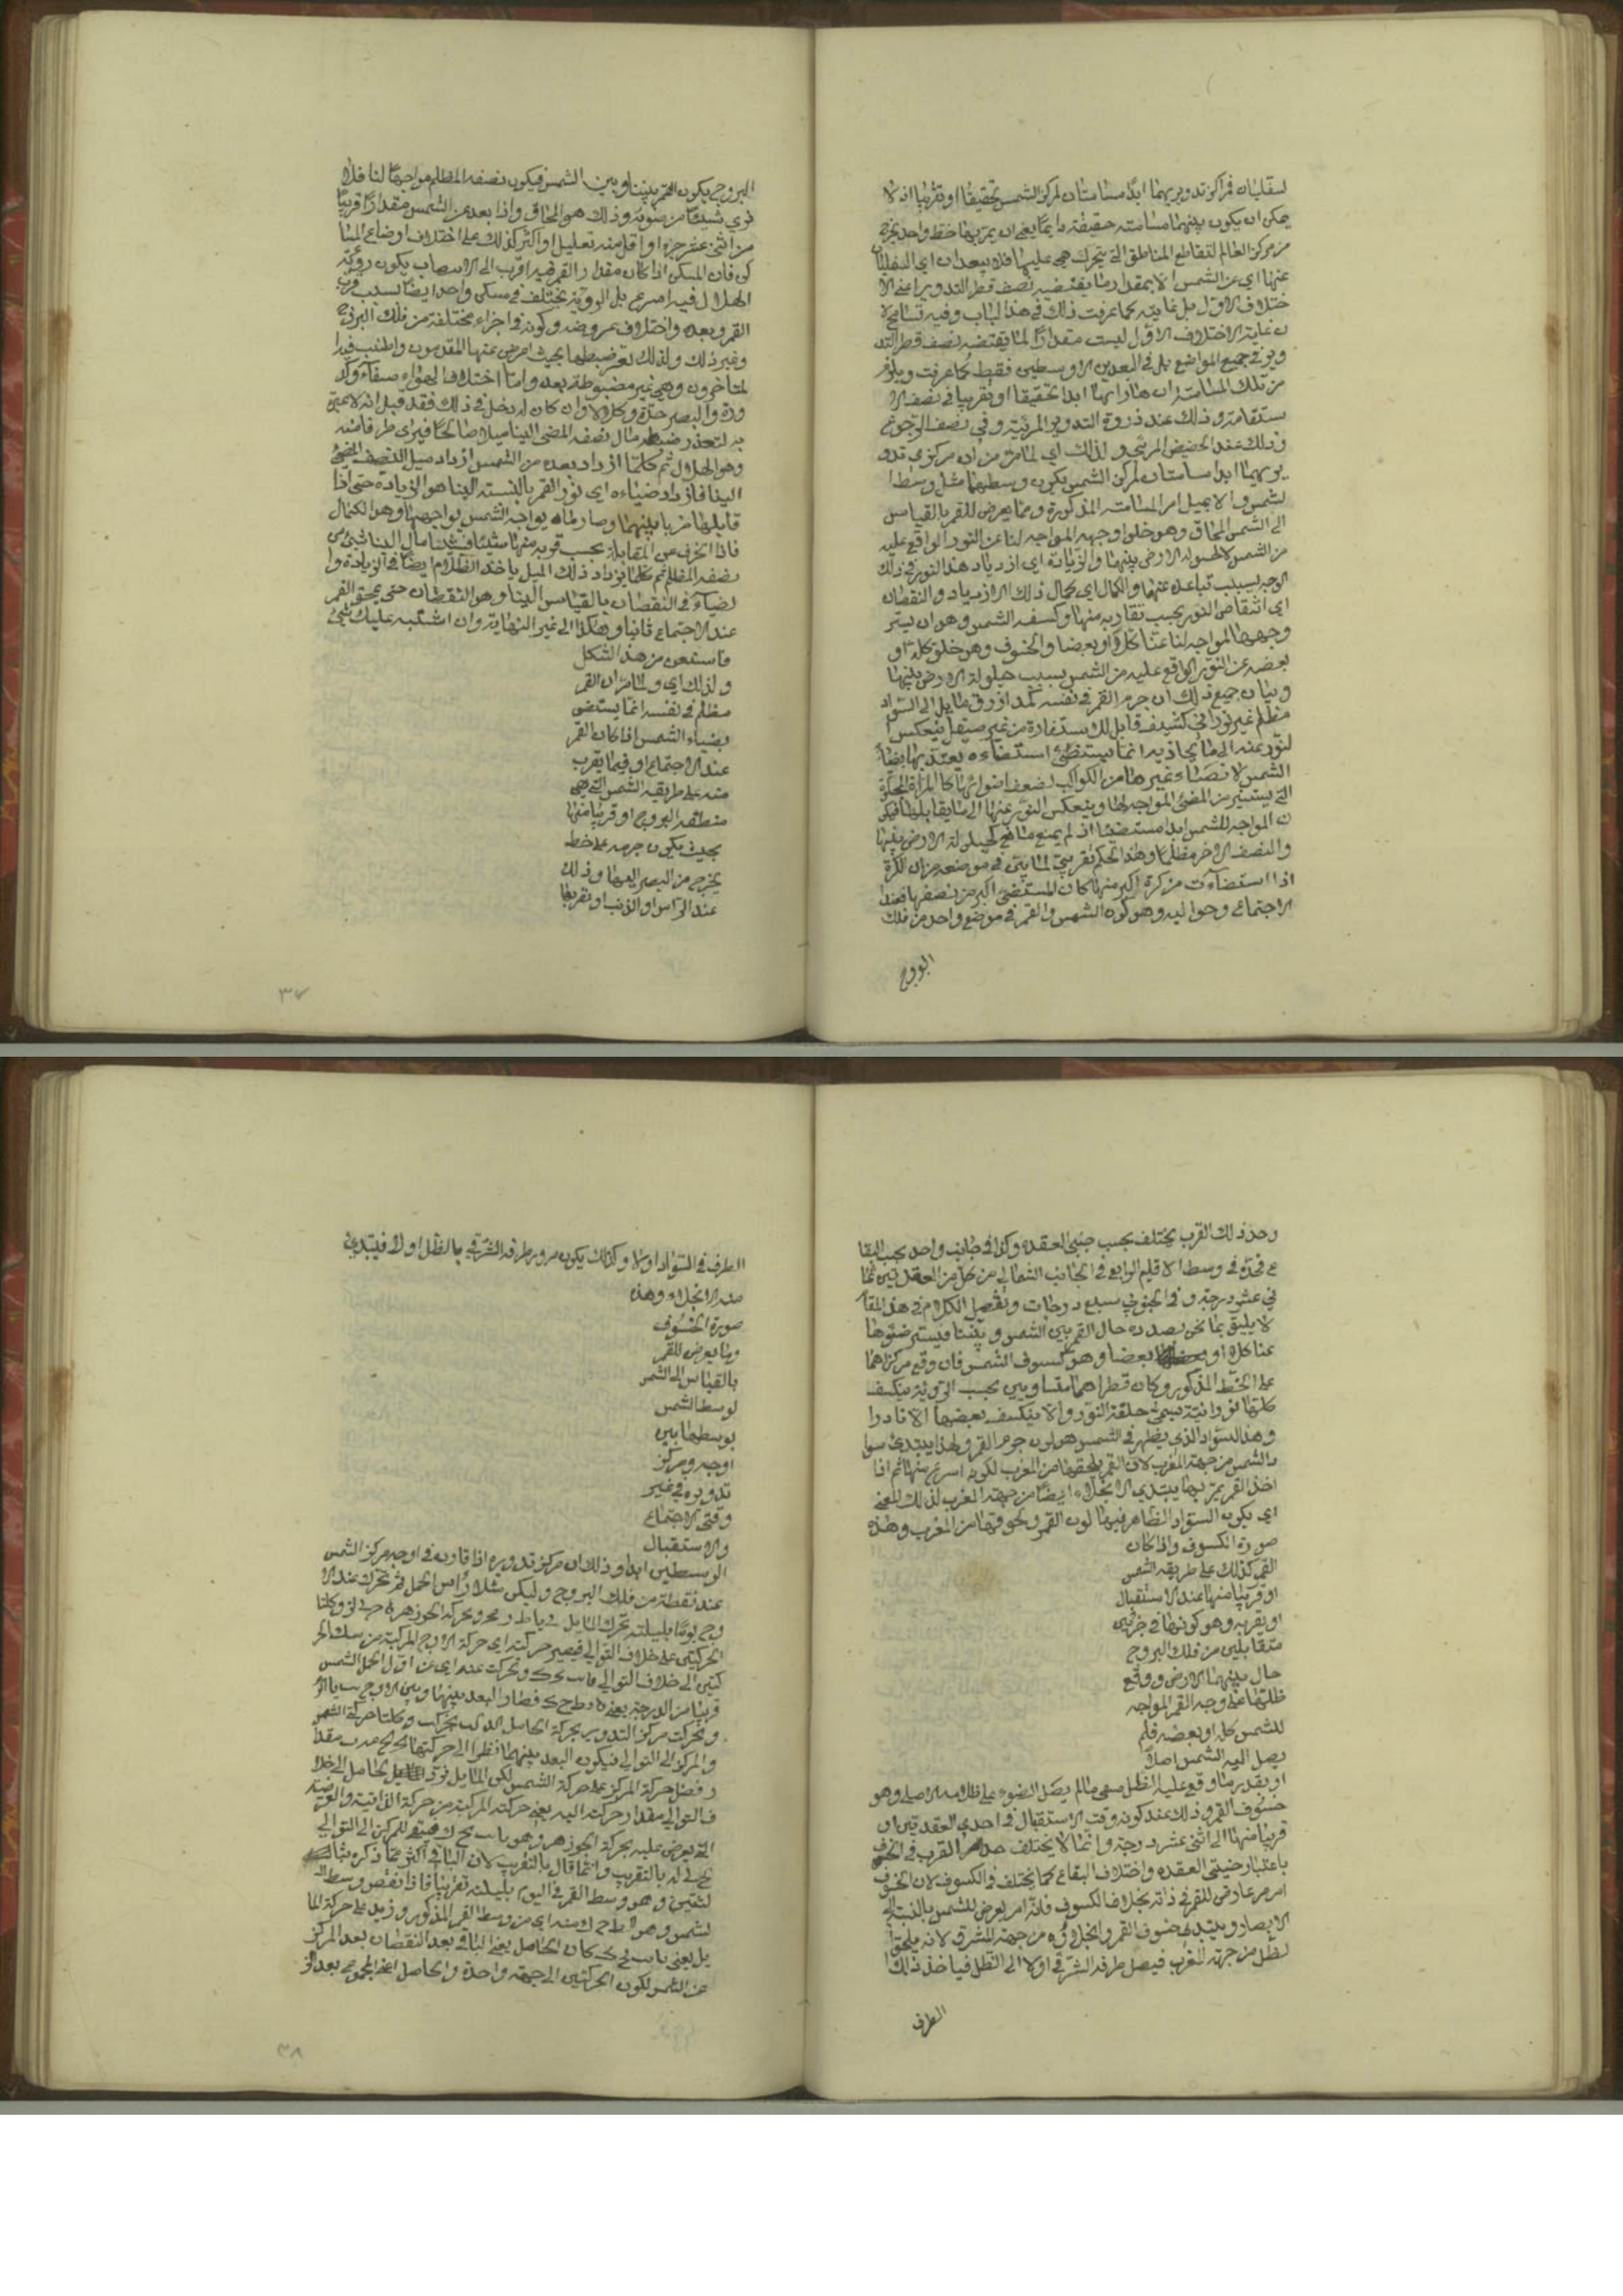 لسفليان فمركز تدويريهما ابدًا مسامتان لمركز الشمس تحقيقًا او تقريبًا اذ لا
يمكن ان يكون بينهما مسامتة حقيقة دايمًا يعني ان يمر بهما خط واحد يخرج
من مركز العالم لتقاطع المناطق التي يتحرك هي عليها فلا يبعدان اي السفليان
عنها اي عن الشمس الا بمقدار ما يقتضيه نصف قطر التدوير اعني الا
ختلاف الاول بل غايته كما عرفت ذلك في هذا الباب وفيه تسامح لا
ن غاية الاختلاف الاول ليست مقدارًا لما يقتضيه نصف قطر التد
وير في جميع المواضع بل في البعدين الاوسطين فقط كما عرفت ويلزم
من تلك المسامتة ان يقارناها ابدا تحقيقا او تقريبا في نصف الا
ستقامة وذلك عند ذروة التدوير المرئية وفي نصف الرجوع
وذلك عند الحضيض المرئي ولذلك اي لما مر من ان مركزي تدو
يريهما ابدا مسامتان لمركز الشمس يكون وسطهما مثل وسط ا
لشمس والا يبطل امر المسامتة المذكورة ومما يعرض للقمر بالقياس
الى الشمس المحاق وهو خلو وجهه المواجه لنا عن النور الواقع عليه
من الشمس لا لحيلولة الارض بينهما والزيادة اي ازدياد هذا النور في ذلك
الوجه بسبب تباعده عنها والكمال اي كمال ذلك الازدياد والنقصان
اي انتقاص النور بحسب تقاربه منها وكسفه الشمس وهو ان يستر
وجهها المواجه لنا عنا كلا او بعضا والخسوف وهو خلو كله او
بعضه عن النور الواقع عليه من الشمس بسبب حيلولة الارض بينهما
وبيان جميع ذلك ان جرم القمر في نفسه كمد ازرق مايل الى السواد
مظلم غير نوراني كثيف قابل للاستفادة من غير صيقل ينعكس ا
لنور عنه الى ما يحاذيه انما يستضئ استضاءة يعتد بها بضياء
الشمس لا بضياء غيرها من الكواكب لضعف اضوائها كالمرآة المجلوة
التي يستنير من المضئ المواجه لها وينعكس النور عنها الى ما يقابلها فيكو
ن المواجه للشمس ابدا مستضيئا اذ لم يمنع مانع كحيلولة الارض بينها
والنصف الاخر مظلما وهذا الحكم تقريبي لما بين في موضعه من ان الكرة
اذا استضاءت من كرة اكبر منها كان المستضئ اكبر من نصفها فعند
الاجتماع وحواليه وهو كون الشمس والقمر في موضع واحد من فلك
البروج
البروج يكون القمر بيننا وبين الشمس فيكون نصفه المظلم مواجها لنا فلا
نرى شيئًا من ضوئه وذلك هو المحاق واذا بعد عن الشمس مقدارًا قريبًا
من اثنى عشر جزءا او اقل منه بقليل او اكثر كذلك على اختلاف اوضاع المسا
كن فان المسكن اذا كان مقدار القمر فيه اقرب الى الانتصاب يكون رؤية
الهلال فيه اسرع بل الرؤية يختلف في مسكن واحد ايضًا بسبب قرب
القمر وبعده واختلاف عروضه وكونه في اجزاء مختلفة من فلك البروج
وغير ذلك ولذلك تعسر ضبطها بحيث اعرض عنها المقدمون واطنب فيها
لمتاخرون وهي غير مضبوطة بعد واما اختلاف الهواء صفاء وكد
ورة والبصر حدة وكلالا وان كان له دخل في ذلك فقد قيل انه لا عبرة
به لتعذر ضبطه مال نصفه المضئ الينا ميلا صالحًا فيرى طرفا منه
وهو الهلال ثم كلما ازداد بعده من الشمس ازداد ميل النصف المضئ
الينا فازداد ضياءه اي نور القمر بالنسبة الينا هو الزيادة حتى اذا
قابلها صرنا بينهما وصار ما يواجه الشمس يواجهنا وهو الكمال
فاذا انحرف عن المقابلة بحسب قربه منها شيئا فشيئا مال الينا شئ من
نصفه المظلم ثم كلما يزداد ذلك الميل ياخذ الظلام ايضا في الزيادة وا
لضياء في النقصان بالقياس الينا وهو النقصان حتى يمحق القمر
عند الاجتماع ثانيا وهكذا الى غير النهاية وان اشتبه عليك شئ
فاستعن من هذا الشكل
ولذلك اي ولما مر ان القمر
مظلم في نفسه انما يستضئ
بضياء الشمس اذا كان القمر
عند الاجتماع او فيما يقرب
منه على طريقة الشمس التي هي
منطقة البروج او قريبا منها
بحيث يكون جرمه على خط
يخرج من البصر اليها وذلك
عند الراس او الذنب او بقربهما
٣٧
وحد ذلك القرب يختلف بحسب جنبي العقدة وكذا في جانب واحد بحسب البقا
ع فحده في وسط الاقليم الرابع في الجانب الشمالي من كل من العقدتين ثما
ني عشر درجة وفي الجنوبي سبع درجات وتفصيل الكلام في هذا المقام
لا يليق بما نحن بصدده حال القمر بين الشمس وبيننا فيستر ضوءها
عنا كلا او بعضا وهو كسوف الشمس فان وقع مركزاهما
على الخط المذكور وكان قطراهما متساويين بحسب الرؤية ينكسف
كلها نورانية تسمى حلقة النور والا ينكسف بعضها الا نادرا
وهذا السواد الذي يظهر في الشمس هو لون جرم القمر ولهذا يبتدئ سوا
د الشمس من جهة المغرب لان القمر يلحقها من المغرب لكونه اسرع منها ثم اذا
اخذ القمر يمر بها يبتدي الانجلاء ايضًا من جهة المغرب لذلك المعنى
اي يكون السواد الظاهر فيها لون القمر ولحوقها من المغرب وهذه
صورة الكسوف واذا كان
القمر كذلك على طريقة الشمس
او قريبا منها عند الاستقبال
او بقربه وهو كونهما في جزئين
متقابلين من فلك البروج
حال بينهما الارض ووقع
ظلها على وجه القمر المواجه
للشمس كله او بعضه فلم
يصل اليه الشمس اصلا
او بقدر ما وقع عليه الظل مما لم يصل الضوء على ظلامه الاصلي وهو
خسوف القمر وذلك عند كونه وقت الاستقبال في احدى العقدتين او
قريبا منهما الى اثنى عشر درجة وانما لا يختلف حد القرب في الخسوف
باعتبار جنبتي العقدة واختلاف البقاع كما يختلف في الكسوف لان الخسوف
امر عارض للقمر في ذاته بخلاف الكسوف فانه امر يعرض للشمس بالنسبة الى
الابصار ويبتدئ خسوف القمر وانجلاؤه من جهة المشرق لانه يلحق ا
لظل من جهة المغرب فيصل طرفه الشرقي اولا الى الظل فياخذ ذلك
الطرف
الطرف في السواد اولا وكذلك يكون مرور طرفه الشرقي بالظل اولا فيبتدئ
منه الانجلاء وهذه
صورة الخسوف
ومما يعرض للقمر
بالقياس الى الشمس
لوسط الشمس
بوسطها بين
اوجه ومركز
تدويره في غير
وقتي الاجتماع
والاستقبال
الوسطين ابدا وذلك ان مركز تدويره اذا قارن في اوجه مركز الشمس
عند نقطة من فلك البروج وليكن مثلا رأس الحمل ثم تحرك عند الا
وج يوما بليلته تحرك المايل وحركة الجوزهر وكلتا
الحركتين على خلاف التوالي فيصير حركته اي حركة الاوج المركبة من
كتين الى خلاف التوالي وتحركت عنه اي عن اول الحمل الشمس
قريبا من الدرجة والبعد بينهما وبين الاوج
وتحركت مركز التدوير بحركة الحامل وكلتا حركة الشمس
والمركز الى التوالي فيكون البعد بينهما نظرا الى حركتهما
وفضل حركة المركز على حركة الشمس لكن المايل الحامل الى خلا
ف التوالي مقدار حركته اليه يعني حركته المركبة من حركة الذاتية والعرضية
التي يعرض عليه بحركة الجوزهر وهو للمركز الى التوالي
بالتقريب وانما قال بالتقريب لان الباقي اكثر مما ذكره
وهو وسط القمر في اليوم بليلته تقريبا فاذا نقص وسط ا
لشمس وهو منه اي من وسط القمر المذكور وزيد على حركة الما
يل يعني كان الحاصل يعني الباقي بعد النقصان بعد المركز
عن الشمس لكون الحركتين الى جهة واحدة والحاصل اعني المجموع بعد
٣٨